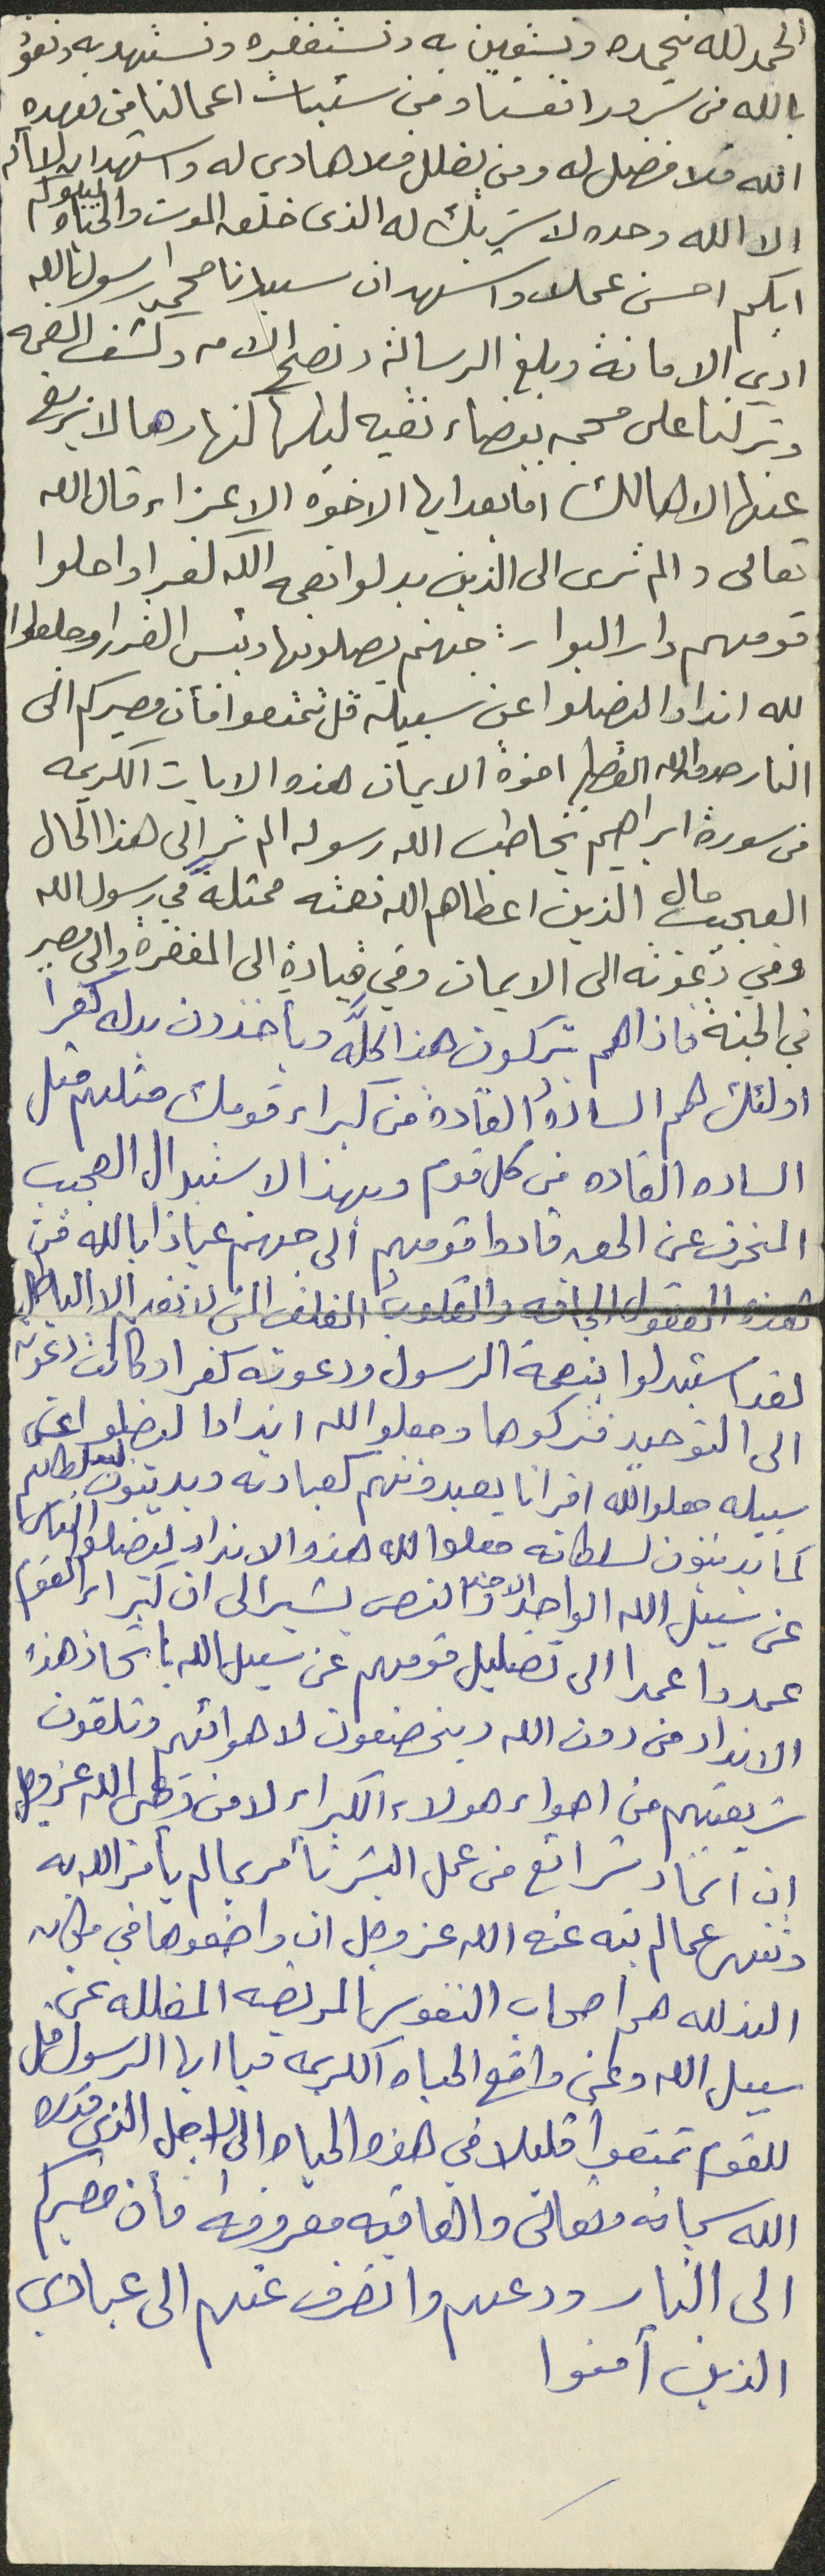 الحمد لله نحمده ونستعين به ونستغفره ونستهديه ونعوذ
بالله من شرور انفسنا ومن سيئات اعمالنا من يهده
الله فلا مضل له ومن يضلل فلا هادي له واشهد ان لا اله
الا الله وحده لا شريك له الذي خلق الموت والحياه ليبلوكم
ايكم احسن عملا واشهد ان سيدنا محمدا رسول الله
ادى الامانة وبلغ الرسالة ونصح الامه وكشف الغمه
وتركنا على محجه بيضاء نقيه ليلها كنهارها لا يزيغ
عنها الا هالك اما بعد ايها الاخوه الاعزاء قال الله
تعالى والم ترى الى الذين بدلوا نعمه الله كفرا واحلوا
قومهم دار البوار : جهنم يصلونها وبئس القرار وجعلوا
لله اندادا ليضلوا عن سبيله قل تمتعوا فأن مصيركم الى
النار صدق الله العظيم اخوة الايمان هذه الايات الكريمه
من سورة ابراهيم يخاطب الله رسوله الم تر الى هذا الحال
العجيب حال الذين اعطاهم الله نعمته ممثلةً في رسول الله
وفي دعوته الى الايمان وفي قيادةٍ الى المغفرة والى مصير
في الجنة فاذا هم يتركون هذا كلَّه ويأخذون بدله كفراً
اولئك هم السادةُ القادة من كبراء قومك مثلهم مثل
الساده القاده من كل قوم وبهذا الاستبدال العجيب
المنحرف عن الحق قادوا قومهم الى جهنم عياذا بالله من
هذه العقول الجافه والقلوبُ الغلف التي لا تفهم الا الباطل
لقد استبدلوا بنعمة الرسول ودعوته كفرا وكانت دعوته
الى التوحيد فتركوها وجعلوا لله اندادا ليضلوا عن
سبيله جعلوا لله اقرانا يعبدونهم كعبادته ويدينون لسلطانهم
كما يدينون لسلطانه جعلوا لله هذه الانداد ليضلوا الناس
عن سبيل الله الواحد الاحد والنص يشير الى ان كبراء القوم
عمدوا عمدا الى تضليل قومهم عن سبيل الله باتخاذ هذه
الانداد من دون الله ويخضعون لاهوائهم وتلقون
شريعتهم من اهواء هولاء الكبراء لا من وحي الله عز وجل
ان اتخاذ شرائع من عمل البشر تأمر بما لم يأمر الله به
وتنهى عما لم ينه عنه الله عز وجل ان واضعوها في مكان
الند لله هم اصحاب النفوس المريضه المضلله عن
سبيل الله وعن واقع الحياه الكريمه فيا ايها الرسول قل
للقوم تمتعوا قليلا في هذه الحياه الى الاجل الذي قدره
الله سبحانه وتعالى والعاقبه معروفه فأن مصيركم
الى النار ودعهم وانصرف عنهم الى عبادي
الذين آمنوا